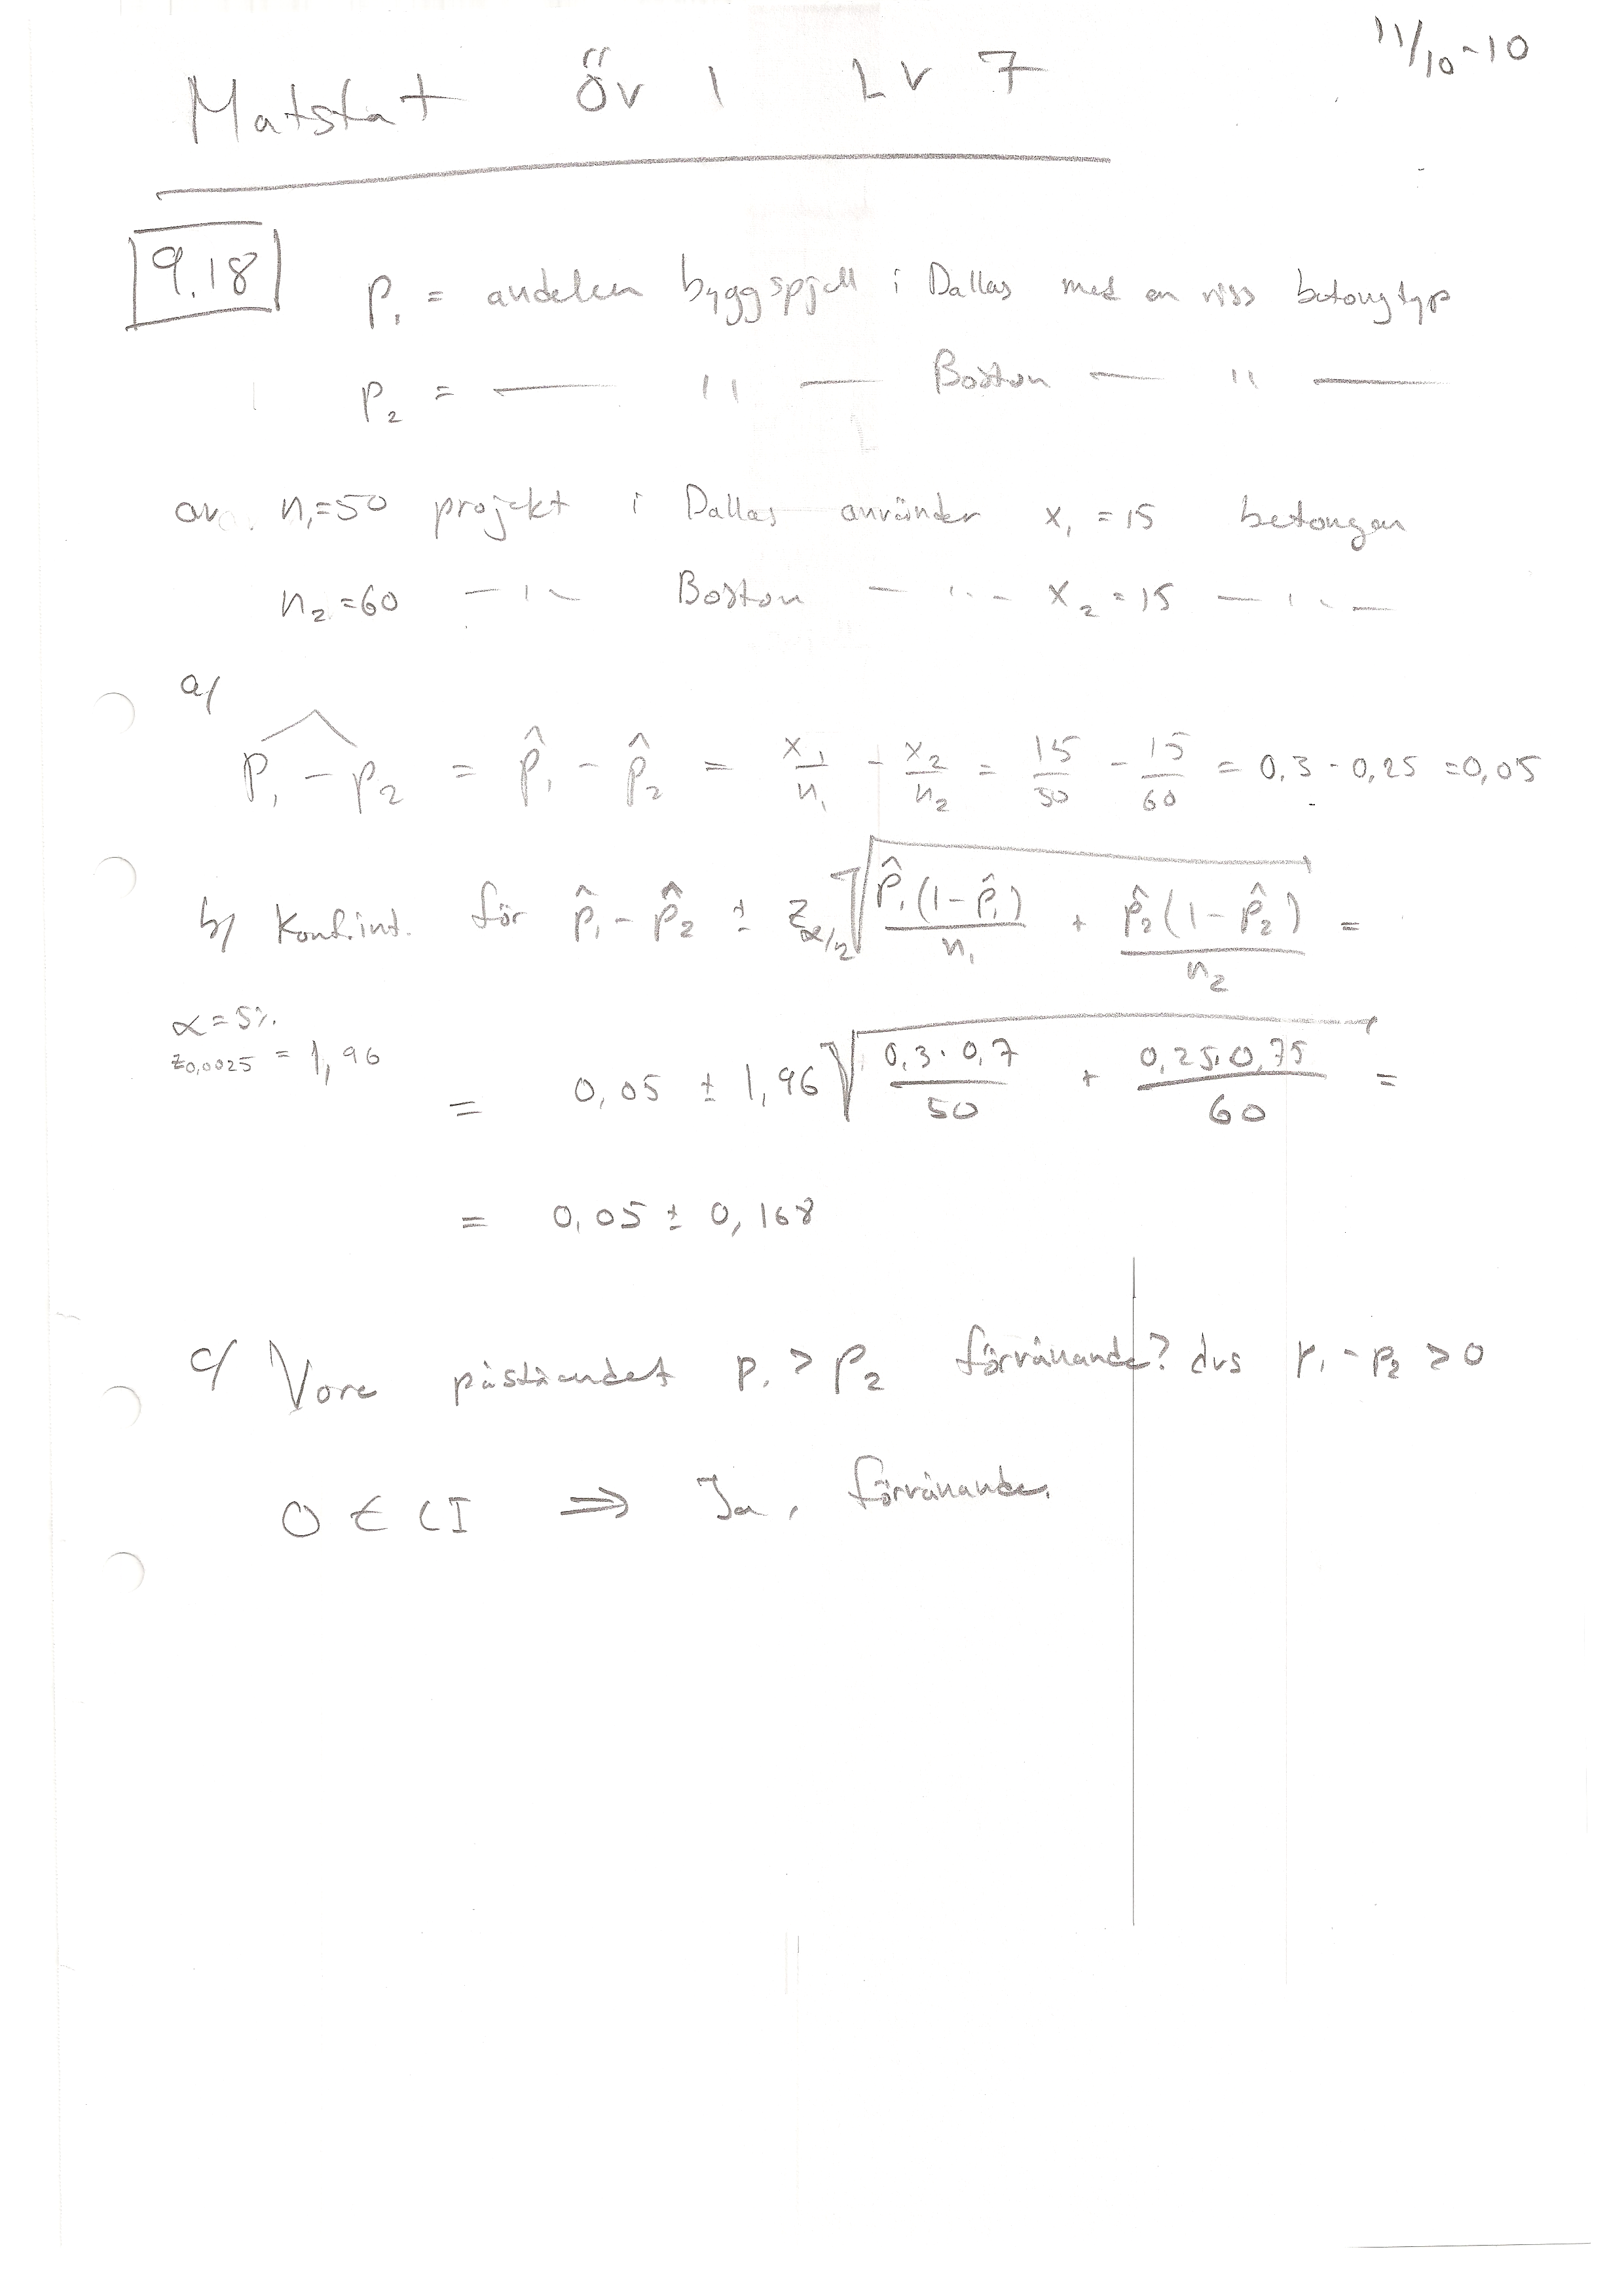 11/10-10
Matstat Öv 1 Lv 7
9.18
p₁ = andelen byggspjell i Dallas med en viss betongtyp
p₂ = — '' — Boston — '' —
av n₁=50 projekt i Dallas använder x₁ = 15 betongen
n₂=60 — '' — Boston — '' — x₂ = 15 — '' —
a/
p₁ - p₂ = p̂₁ - p̂₂ = x₁/n₁ - x₂/n₂ = 15/50 - 15/60 = 0,3 - 0,25 = 0,05
b/ Konf.int. för p̂₁ - p̂₂ ± z_α/2 √(p̂₁(1-p̂₁)/n₁ + p̂₂(1-p̂₂)/n₂) =
α = 5%
z₀,₀₀₂₅ = 1,96
= 0,05 ± 1,96 √(0,3·0,7/50 + 0,25·0,75/60) =
= 0,05 ± 0,168
c/ Vore påståendet p₁ > p₂ förvånande? dvs p₁ - p₂ > 0
0 ∈ CI ⇒ Ja, förvånande.